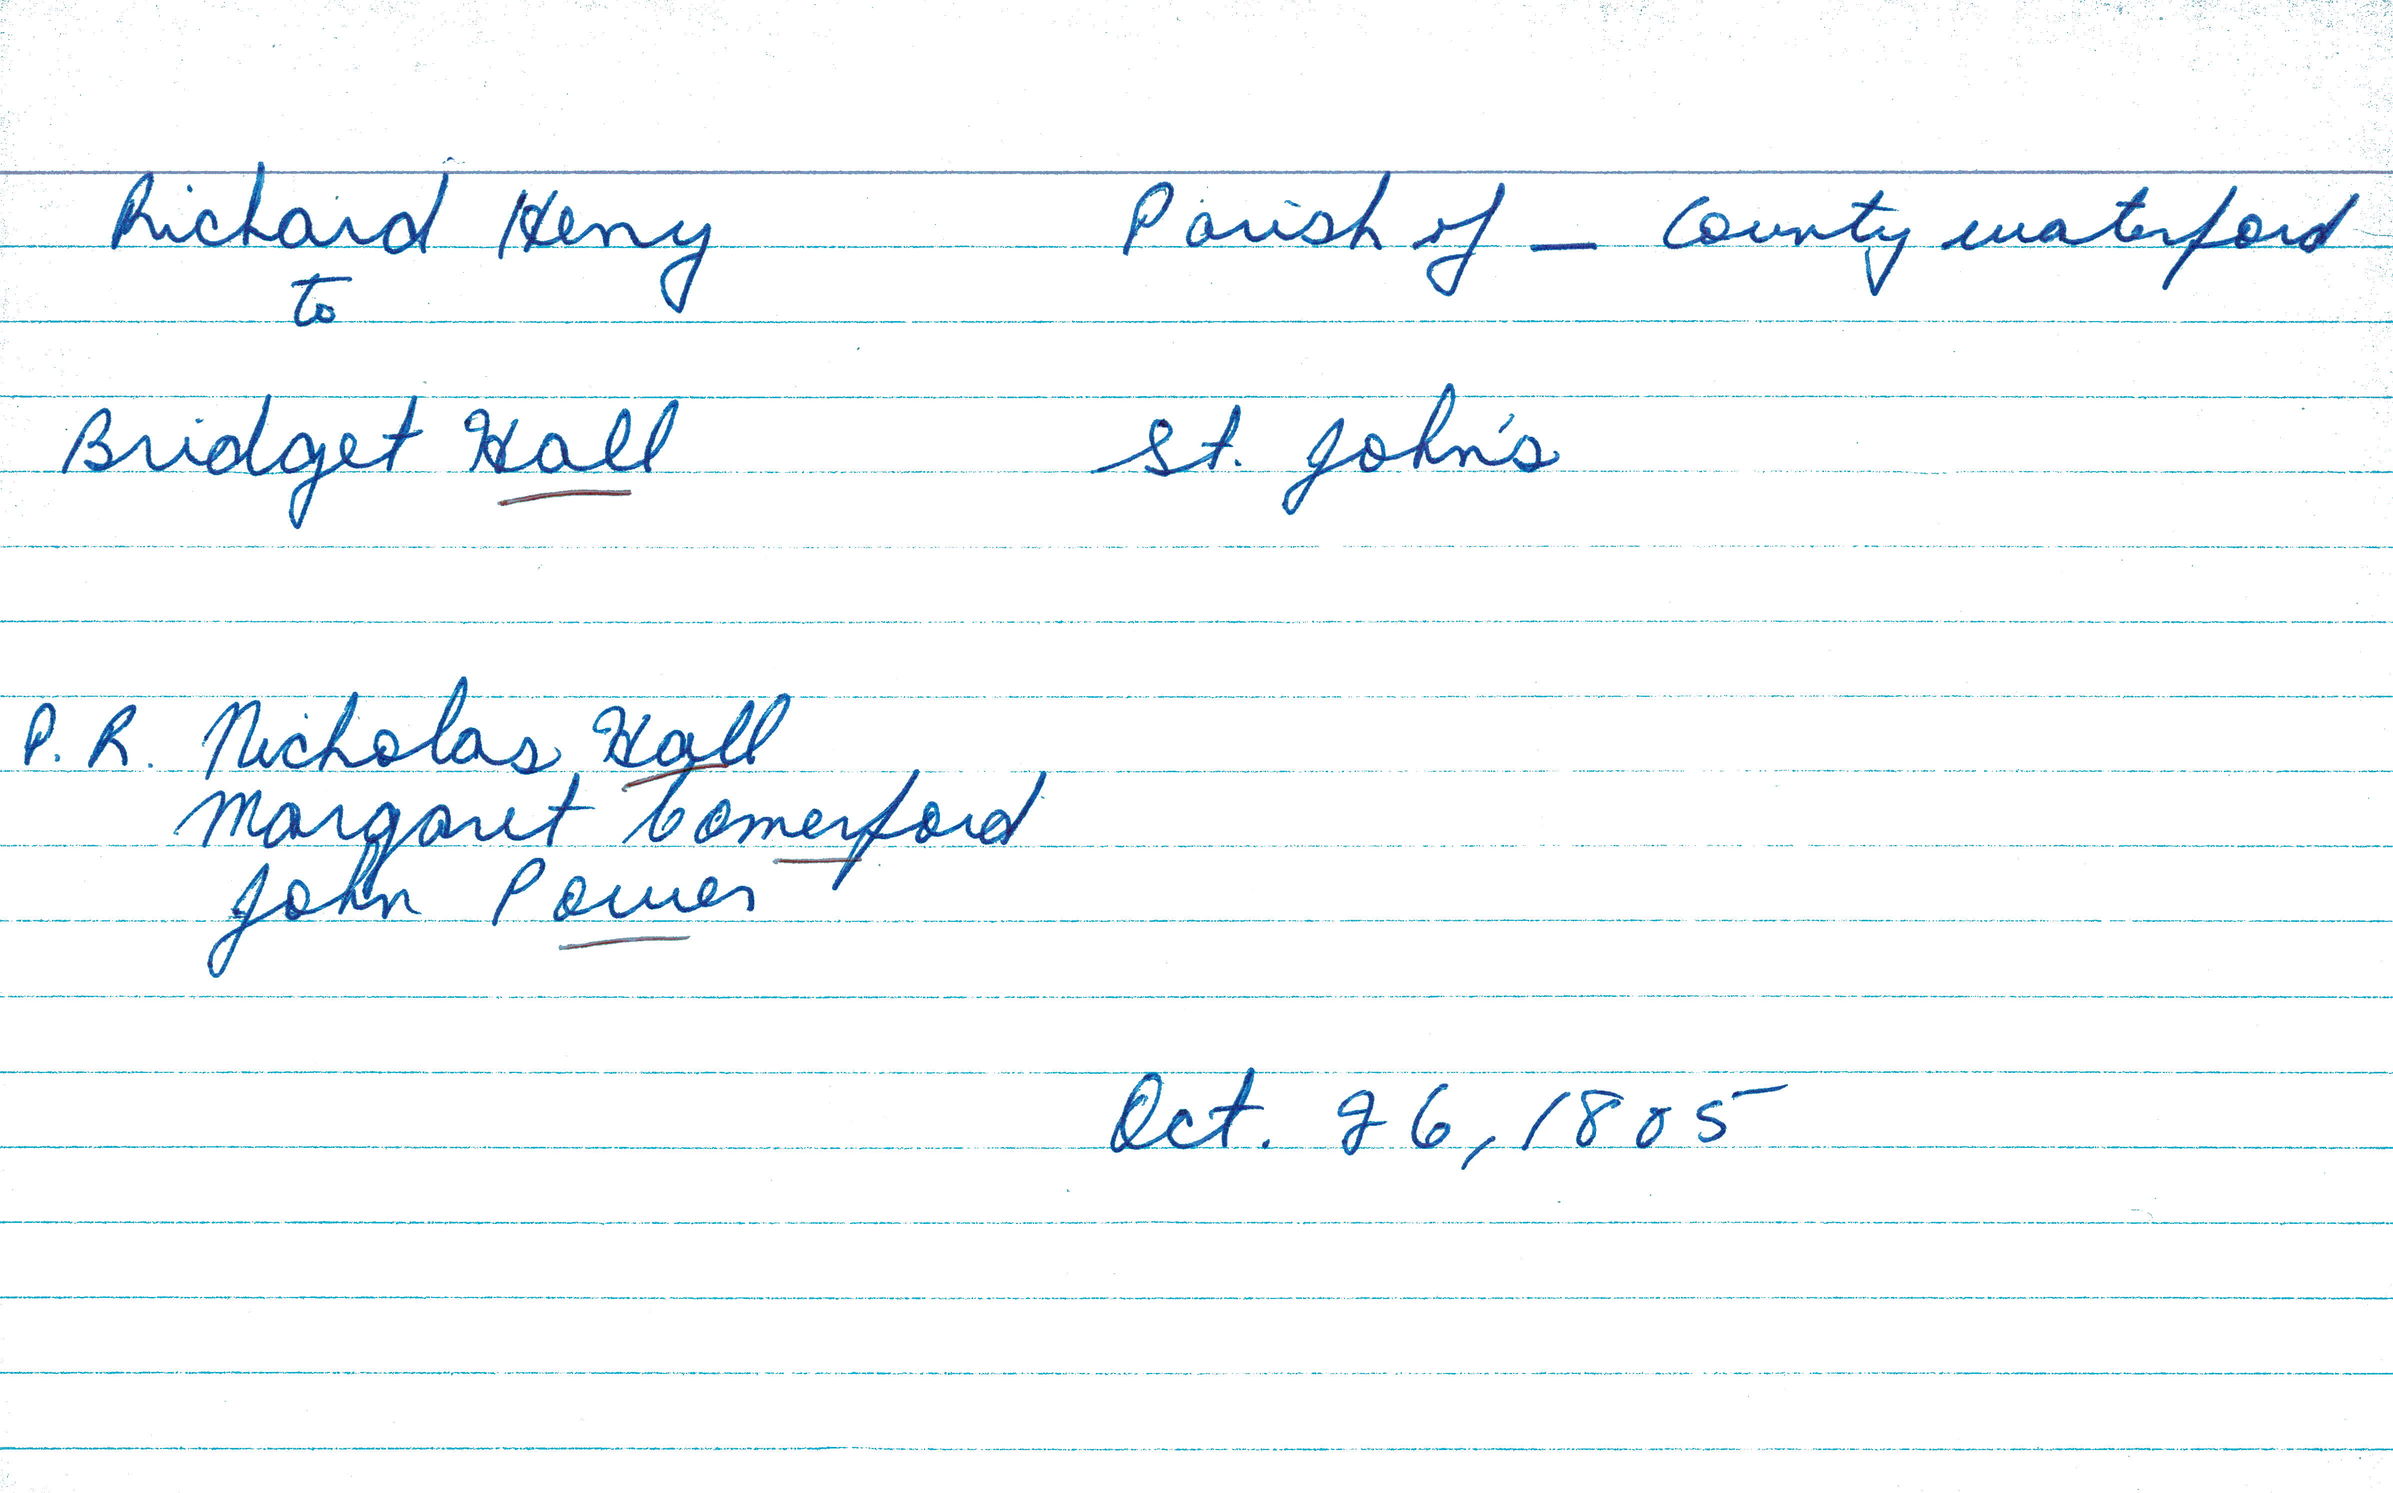 Richard Henry Parish of — County waterford
to
Bridget Hall St. John's
P. R. Nicholas Hall
Margaret Comerford
John Power
Oct. 26, 1805